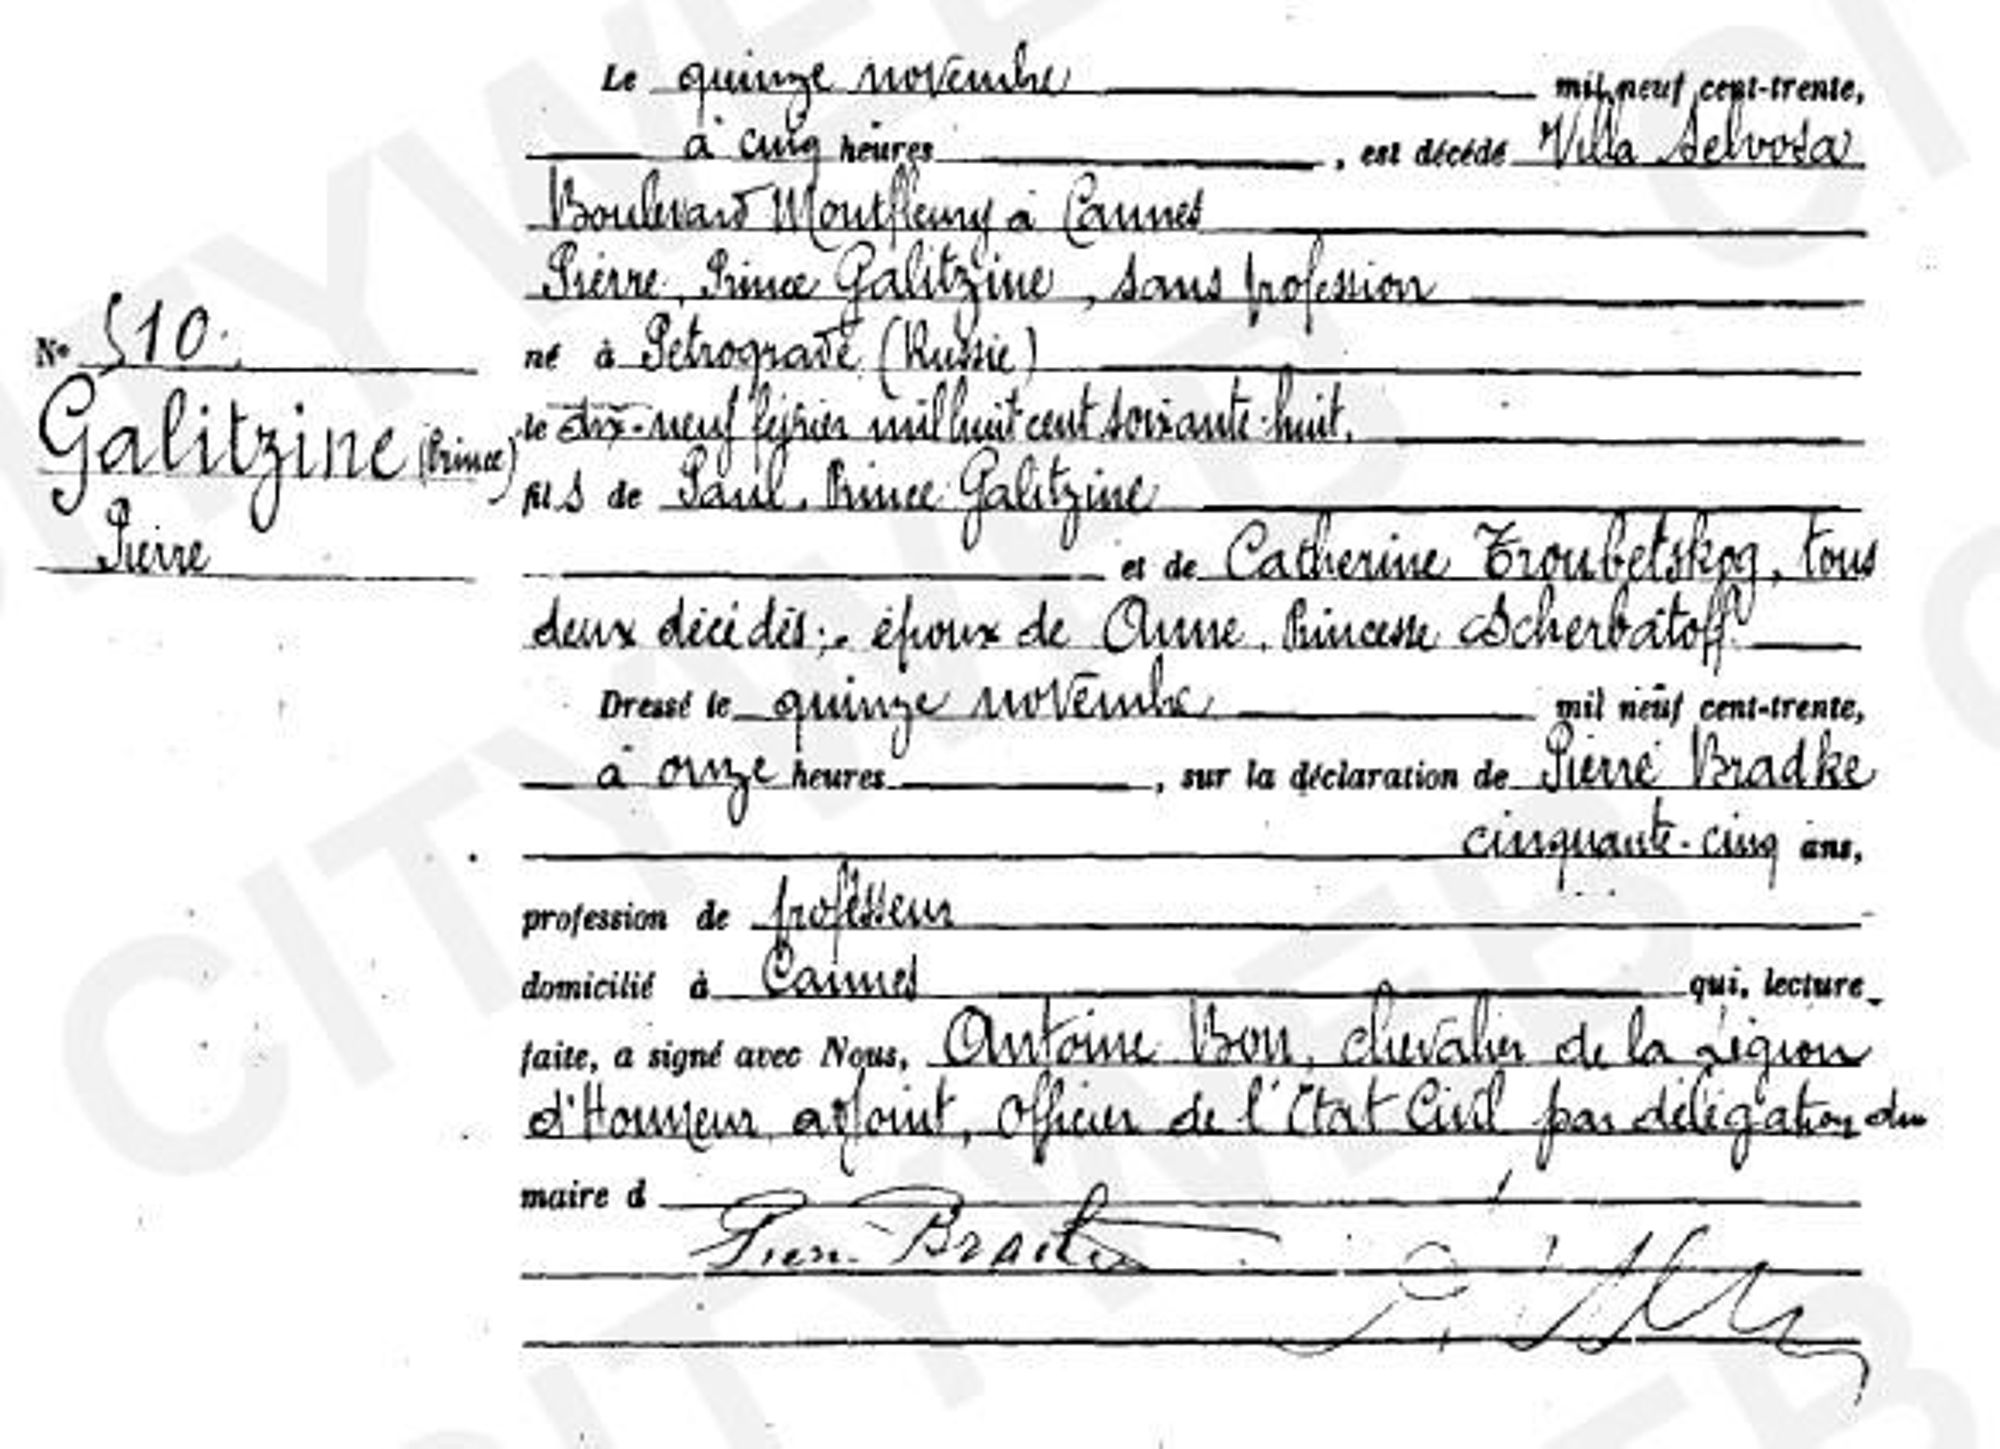 Le quinze novembre mil neuf cent-trente,
à cinq heures , est décédé Villa Selvosa
Boulevard Montfleury à Cannes
Pierre, Prince Galitzine, sans profession
né à Pétrograde (Russie)
le dix-neuf février mil huit cent soixante-huit,
fils de Paul, Prince Galitzine
et de Catherine Troubetskog, tous
deux décédés; époux de Anne, Princesse Scherbatoff.
Dressé le quinze novembre mil neuf cent-trente,
à onze heures , sur la déclaration de Pierre Bradke
cinquante-cinq ans,
profession de professeur
domicilié à Cannes qui, lecture
faite, a signé avec Nous, Antoine Bon, chevalier de la Légion
d'Honneur, adjoint, Officier de l'Etat Civil par délégation du
maire d
No 510.
Galitzine (Prince)
Pierre
CITYWEB